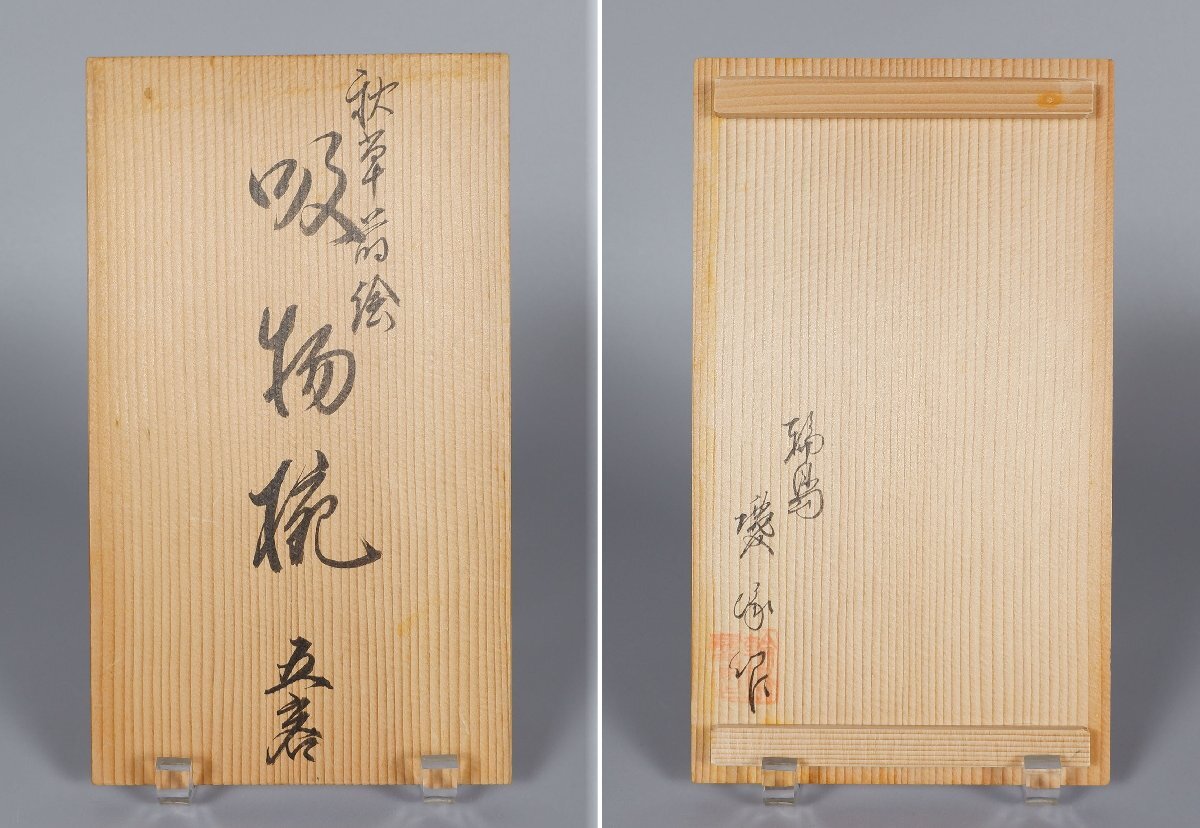 秋草蒔絵
吸物椀 五客
輪島
作